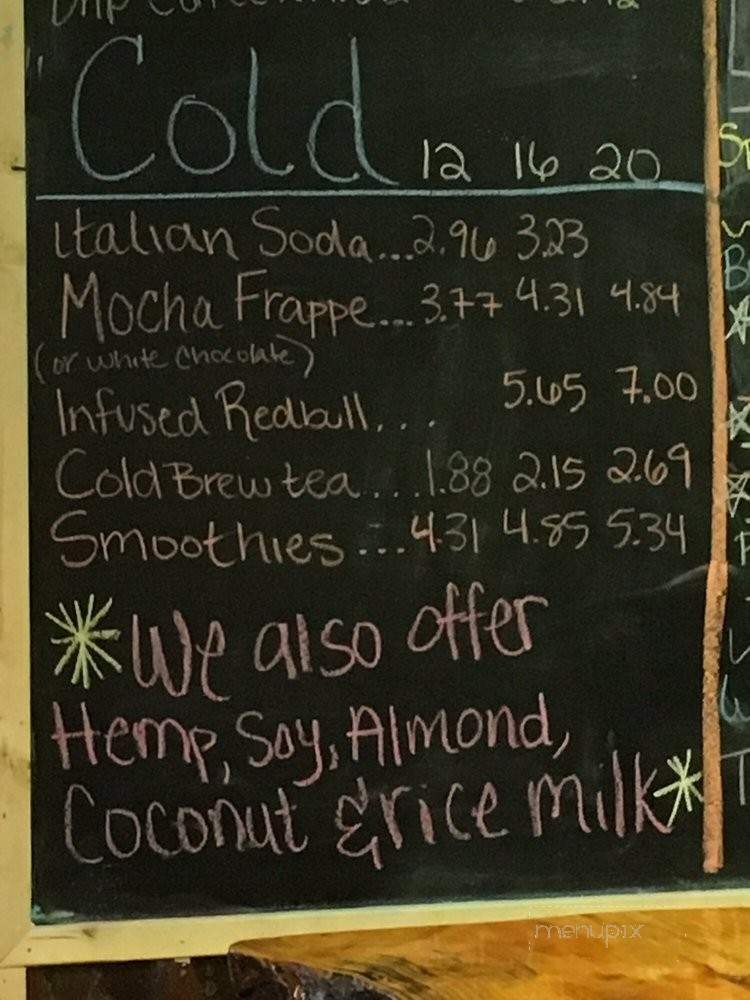 Cold 12 16 20
Italian Soda...2.96 3.23
Mocha Frappe...3.77 4.31 4.84
(or white chocolate)
Infused Redbull... 5.65 7.00
Cold Brew tea....1.88 2.15 2.69
Smoothies...4.31 4.85 5.34
*We also offer
Hemp, Soy, Almond,
Coconut & rice milk*
menupix